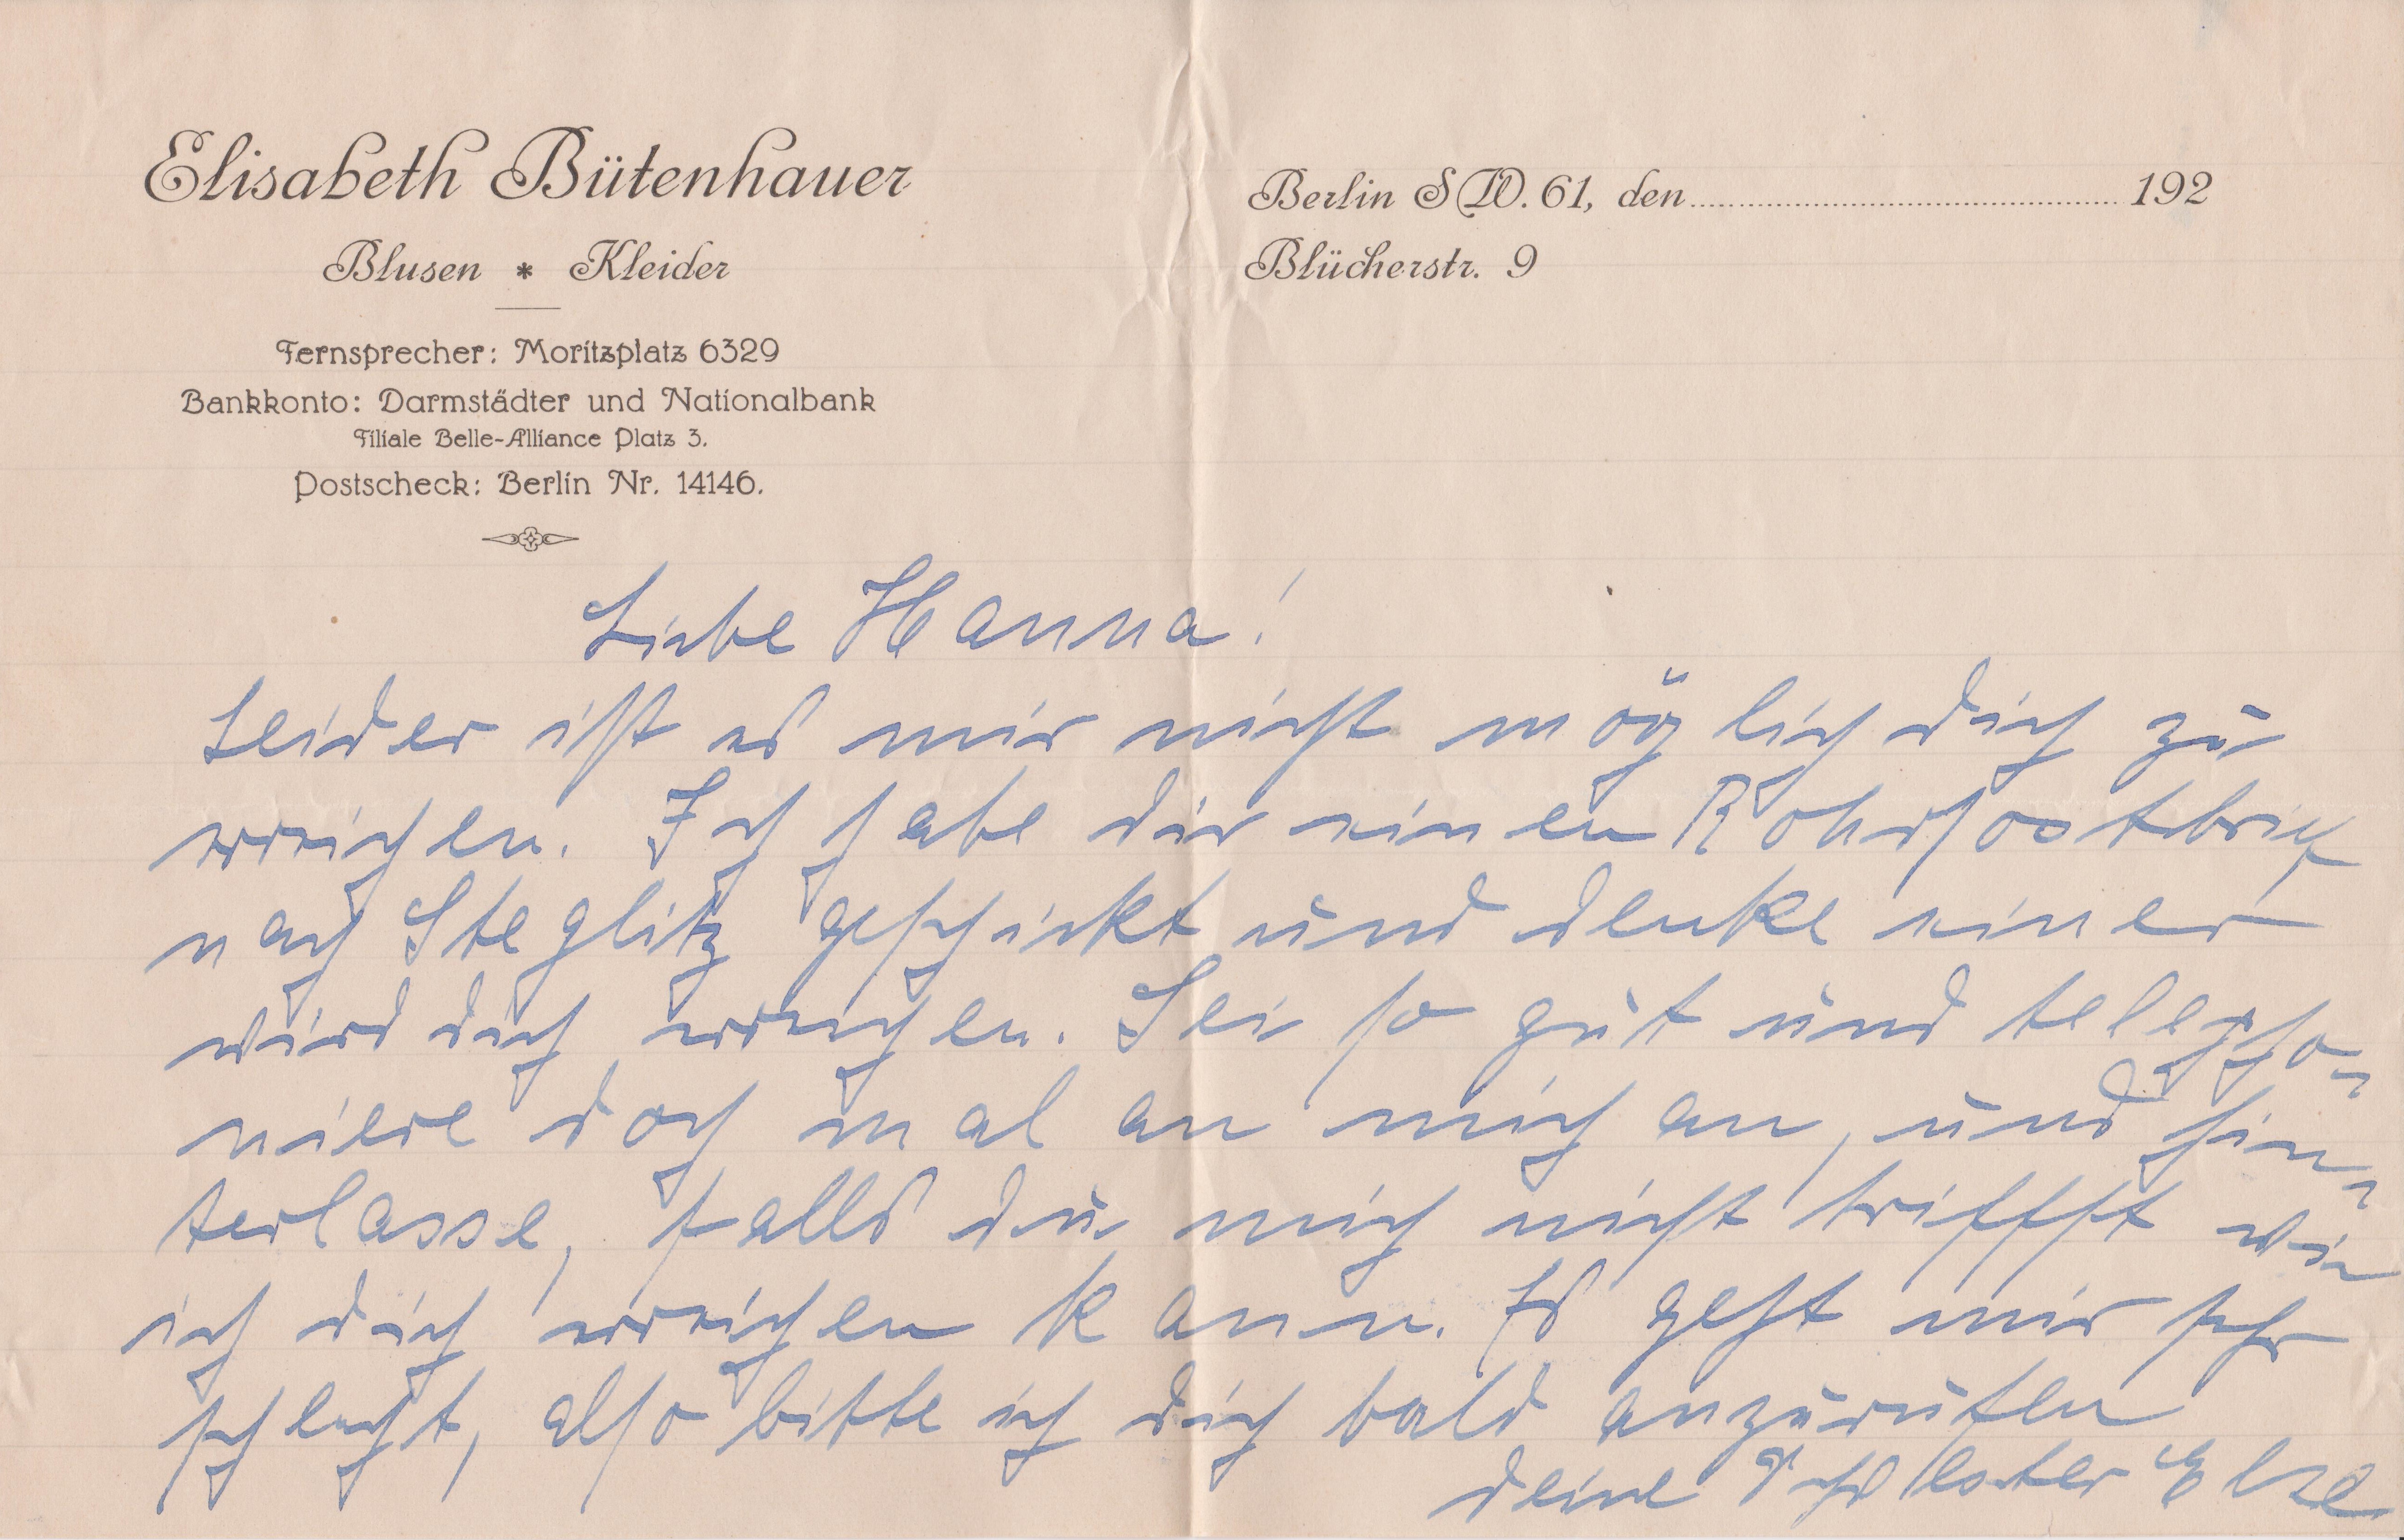 Elisabeth Bütenhauer
Blusen * Kleider
Fernsprecher: Moritzplatz 6329
Bankkonto: Darmstädter und Nationalbank
Filiale Belle-Alliance Platz 3.
Postscheck: Berlin Nr. 14146.
Berlin SW. 61, den 192
Blücherstr. 9
Liebe Hanna!
Leider ist es mir nicht möglich dich zu
erreichen. Ich habe dir einen Rohrpostbrief
nach Steglitz geschickt und denke einer
wird dich erreichen. Sei so gut und telepho-
niere doch mal an mich an, und hin-
terlasse, falls du mich nicht triffst wie
ich dich erreichen kann. Es geht mir sehr
schlecht, also bitte ich dich bald anzurufen
deine Schwester Else